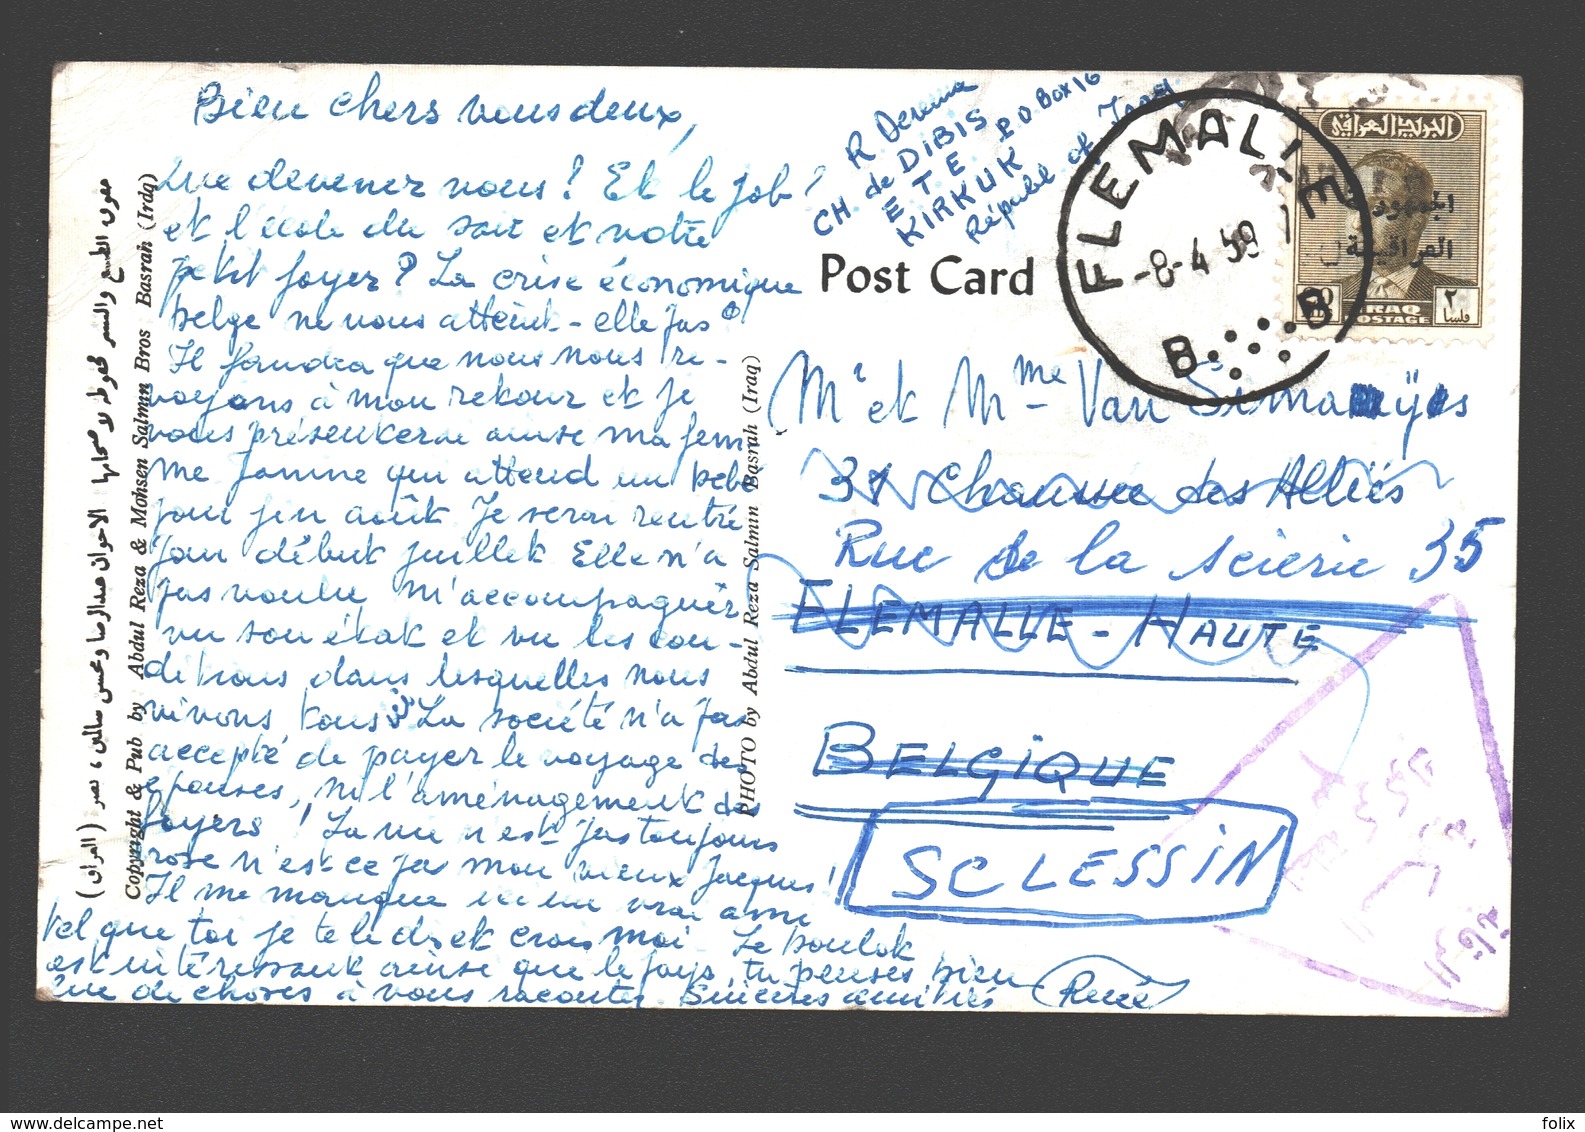 Bien chers vous deux,
Que devenez vous ? Et le job ?
et l'école du soir et votre
petit foyer ? La crise économique
belge ne vous atteint-elle pas ?
Il faudra que nous nous re-
voyons à mon retour et je
vous présenterai ainsi ma fem
me Janine qui attend un bébé
pour fin août. Je serai rentré
pour début juillet. Elle n'a
pas voulu m'accompagner
vu son état et vu les con-
ditions dans lesquelles nous
vivons tous ici. La société n'a pas
accepté de payer le voyage des
épouses, ni l'aménagement des
foyers ! La vie n'est pas toujours
rose n'est ce pas mon vieux Jacques !
Il me manque ici un vrai ami
tel que toi je te le dis et crois moi. Le boulot
est intéressant ainsi que le pays, tu penses bien
que de choses à vous raconter. Sincères amitiés René
R
CH. de DIBIS
E T E P.O Box 16
KIRKUK
Républ. of Iraq
Post Card
FLEMALLE
-8-4 59
B B
الجمهورية
العراقية
IRAQ
POSTAGE
فلسا
Mr et Mme Van
31 Chaussée des Alliés
Rue de la scierie 35
FLEMALLE-HAUTE
BELGIQUE
SCLESSIN
Copyright & Pub by Abdul Reza & Mohsen Salmin Bros Basrah (Iraq)
PHOTO by Abdul Reza Salmin Basrah (Iraq)
felix
www.delcampe.net